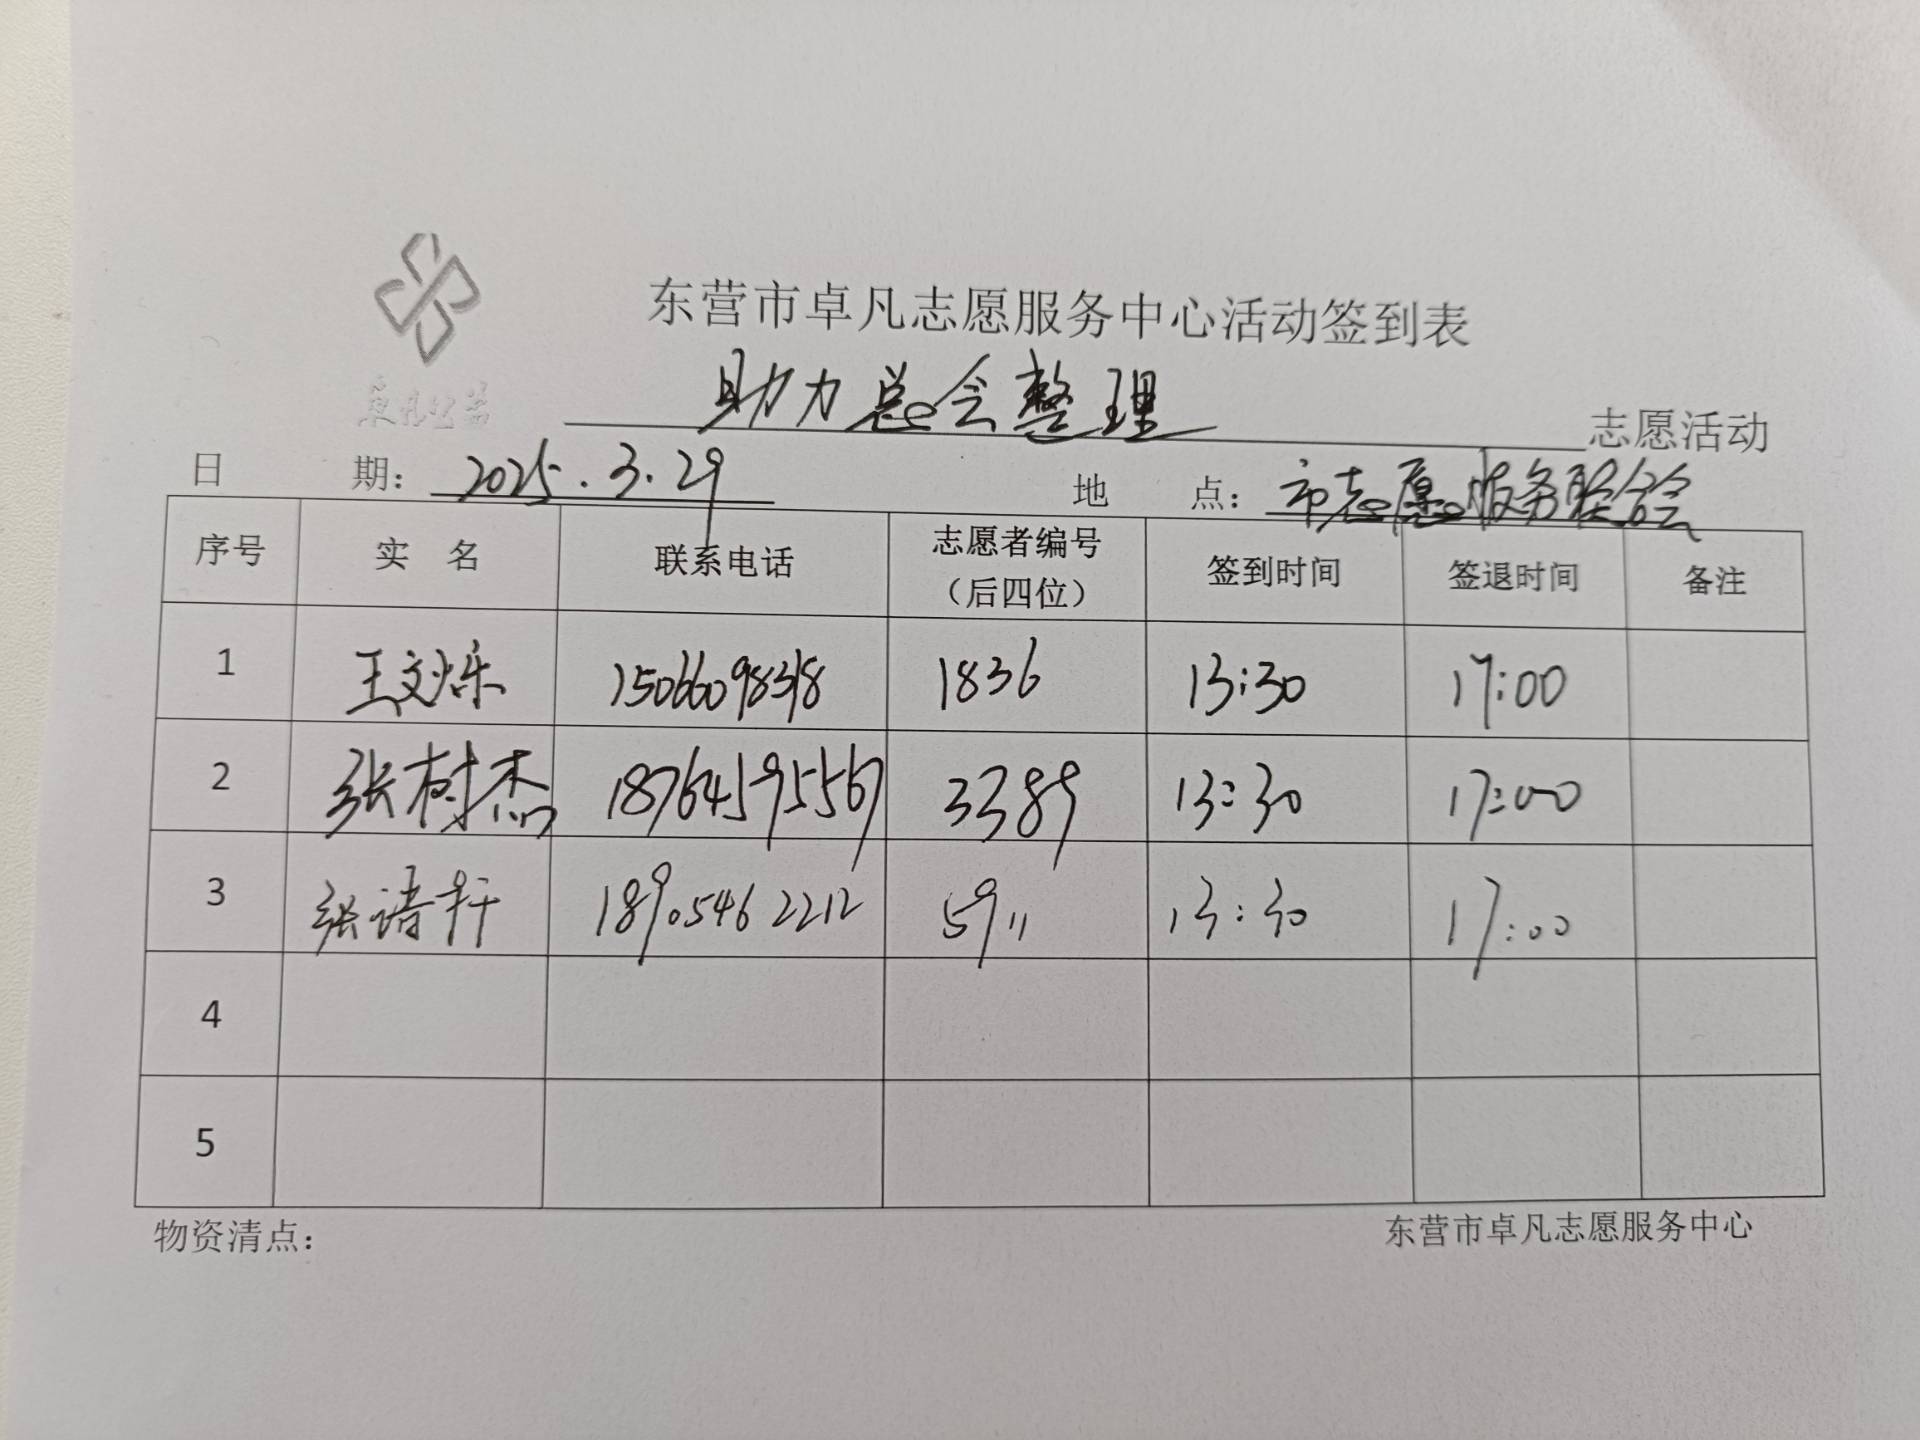 东营市卓凡志愿服务中心活动签到表
卓凡公益
助力总会整理 志愿活动
日 期： 2025.3.29 地 点： 市志愿服务联合会
序号 实 名 联系电话 志愿者编号（后四位） 签到时间 签退时间 备注
1 王文烁 15066098318 1836 13:30 17:00
2 张树杰 18764595567 3389 13:30 17:00
3 张诗轩 18905462212 5911 13:30 17:00
4
5
物资清点： 东营市卓凡志愿服务中心